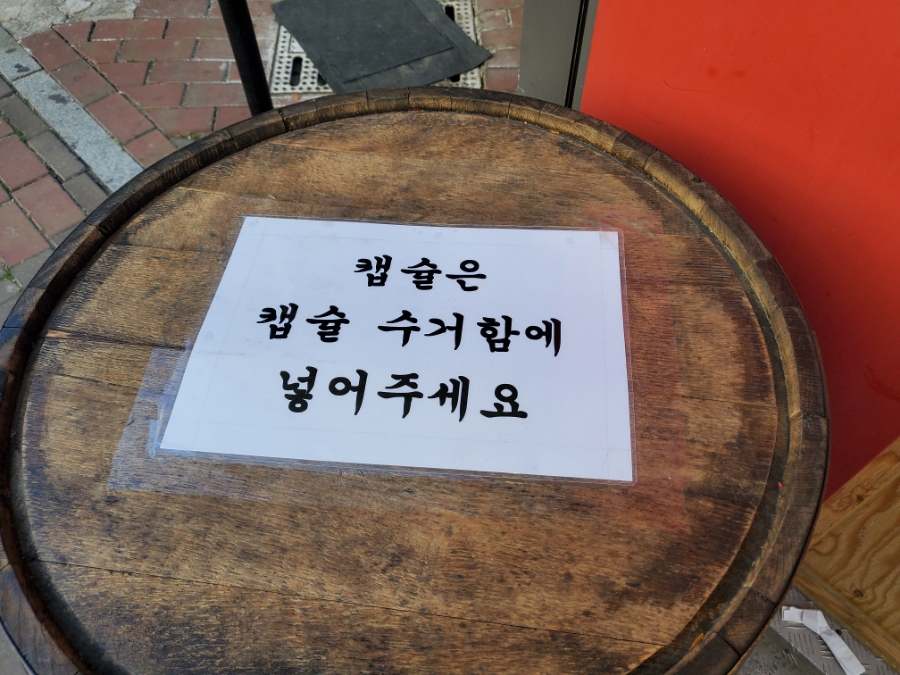 캡슐은
캡슐 수거함에
넣어주세요